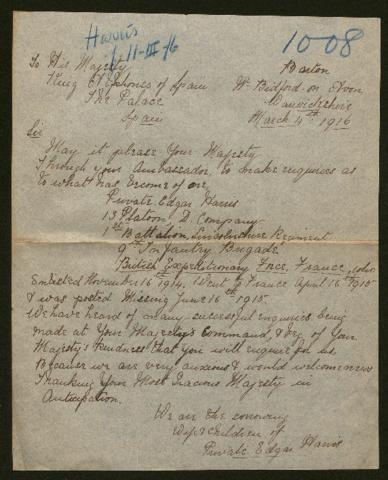 Harris
11-III-16
1008
To His Majesty
King Alphonso of Spain
The Palace
Spain
Barton
Nr Bidford-on Avon
Warwickshire
March 4th 1916
Sir
May it please Your Majesty
Through your Ambassador, to make enquiries as
to what has become of one
Private Edgar Harris
13 Platoon D. Company
1st Battalion, Lincolnshire Regiment
9th Infantry Brigade
British Expeditionary Force, France, who
Enlisted November 16 1914. Went to France April 16th 1915
& was posted Missing June 16th 1915.
We have heard of many successful enquiries being
made at Your Majesty's Command, & beg of Your
Majesty's kindness that you will enquire for us
Because we are very anxious & would welcome news
Thanking Your Most Gracious Majesty in
Anticipation.
We are the sorrowing
Wife & children of
Private Edgar Harris